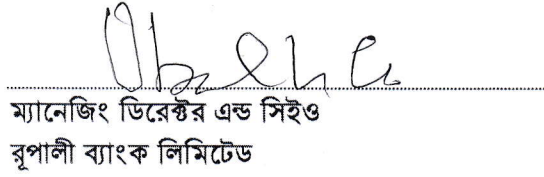 ম্যানেজিং ডিরেক্টর এন্ড সিইও
রূপালী ব্যাংক লিমিটেড